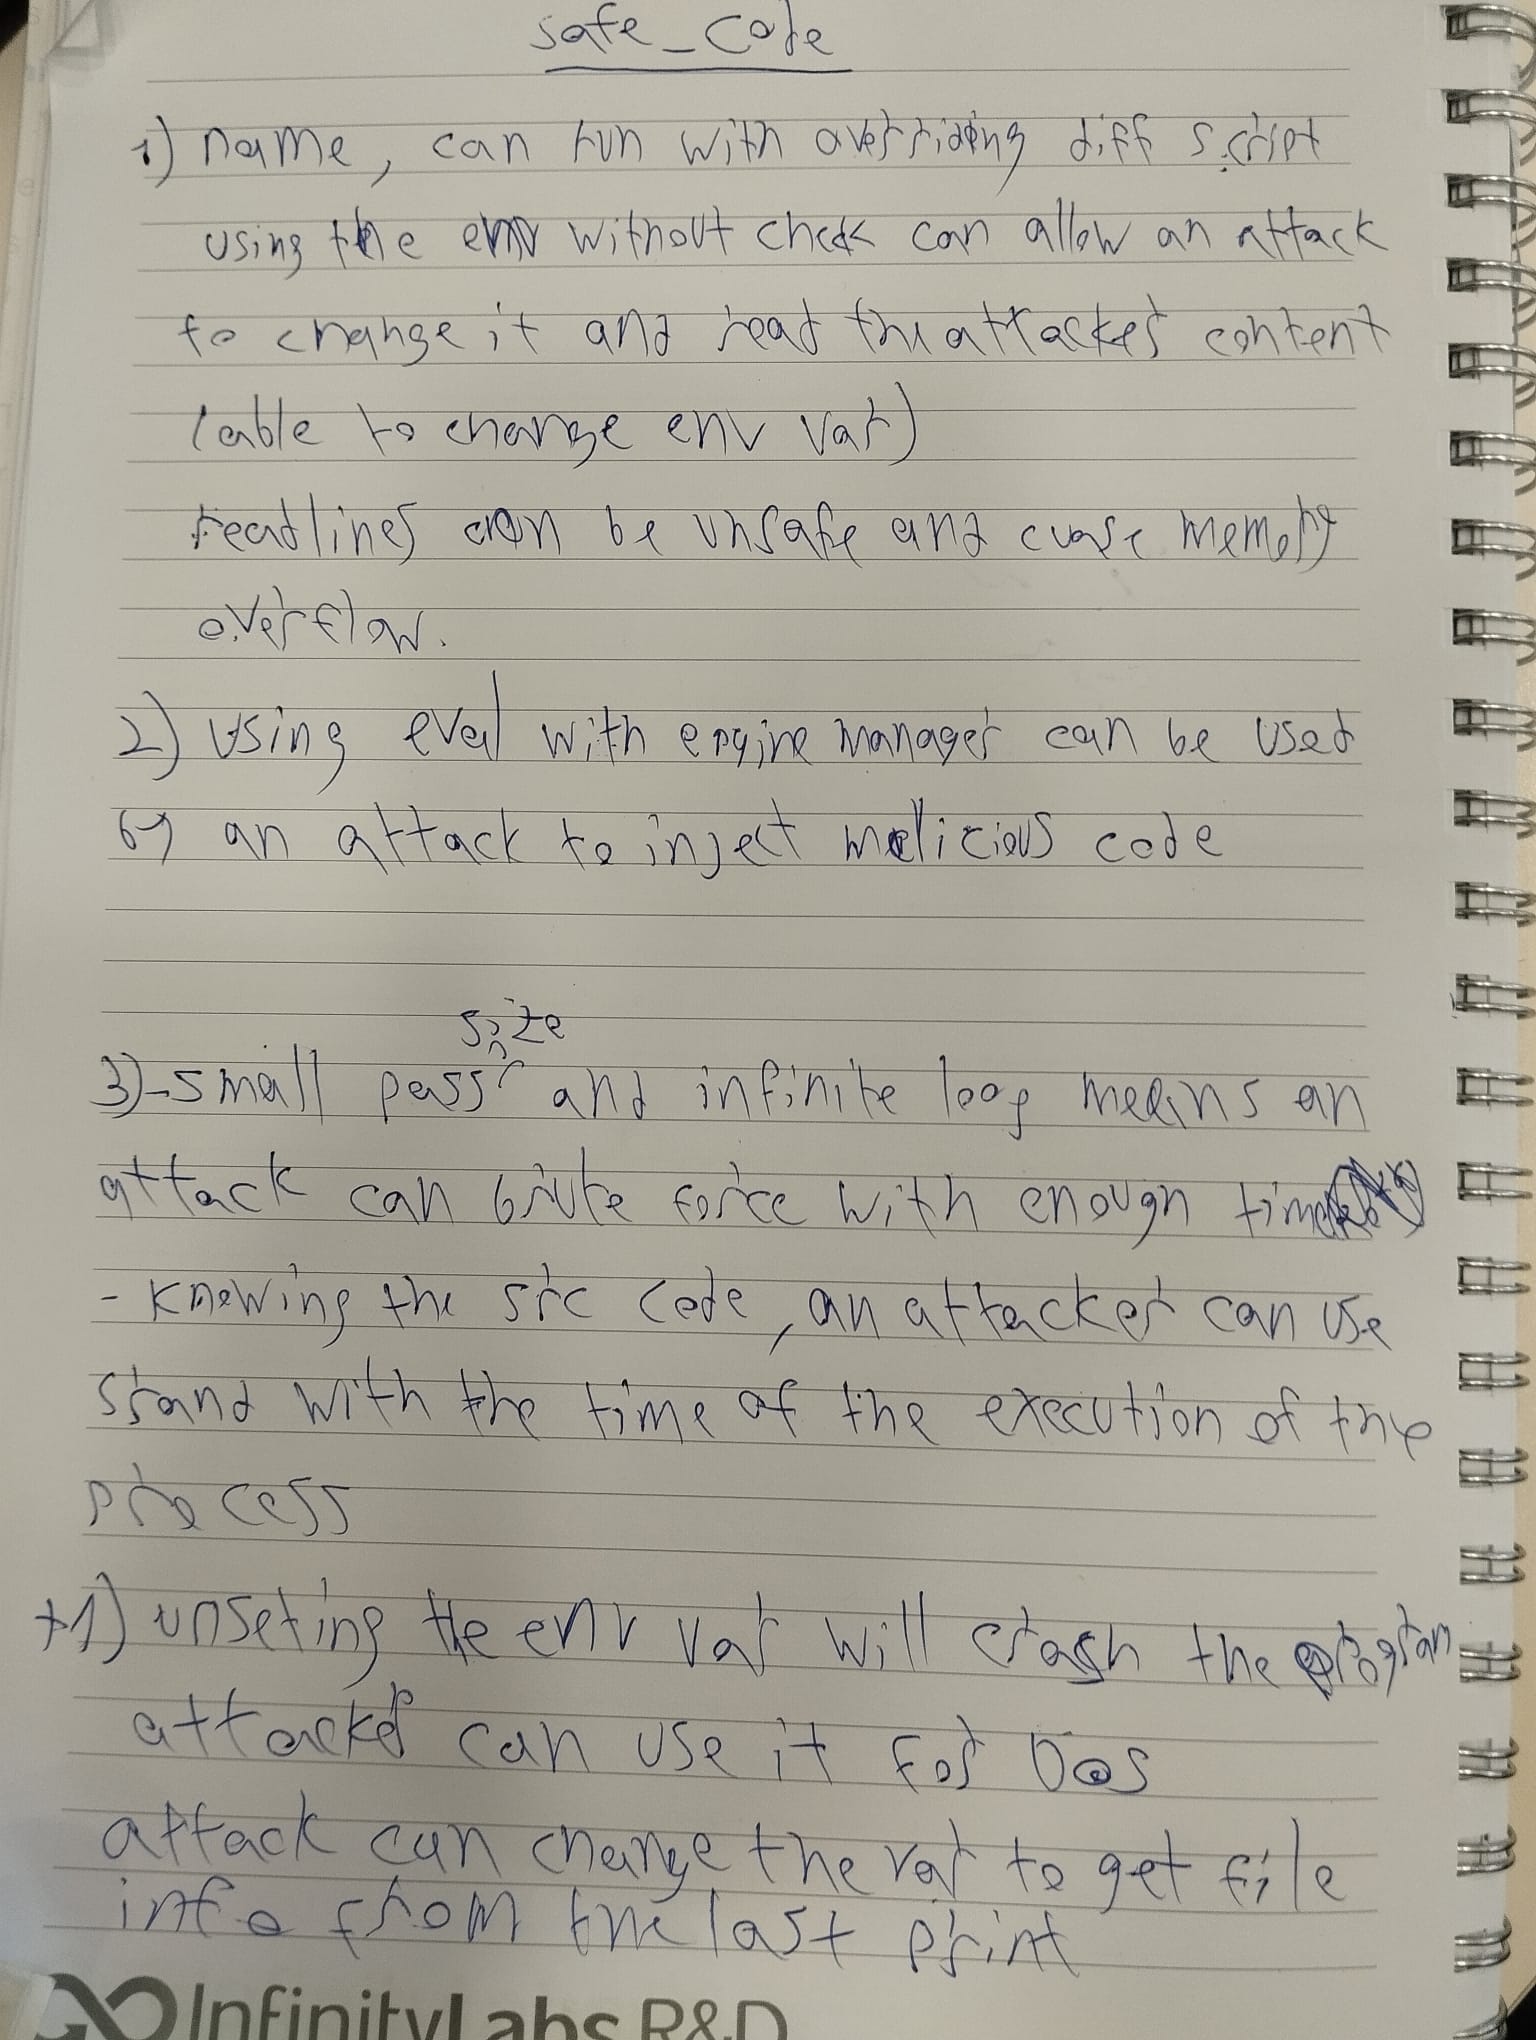 safe_code
1) name, can run with overriding diff script
using the env without check can allow an attack
to change it and read the attacker content
(able to change env var)
readlines can be unsafe and cuase memory
overflow.
2) using eval with engine manager can be used
by an attack to inject melicious code
size
3)-small pass and infinite loop means an
attack can brute force with enough time
- knowing the src code, an attacker can use
srand with the time of the execution of the
process
+1) unseting the env var will crash the program
attacker can use it for Dos
attack can change the var to get file
info from the last print
InfinityLabs R&D